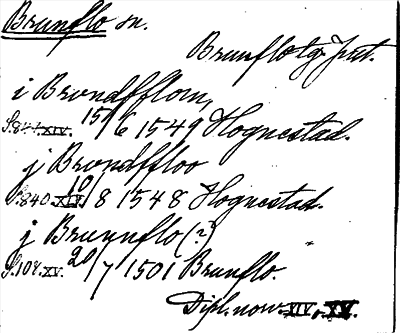 Brunflo sn.
Brunflo tg. Jmt.
i Brondfflom,
S. 841. XIV. 15/6 1549 Hognestad.
j Brondffloo
S. 840. XIV. 10/8 1548 Hognestad.
j Brunnflo (?)
S. 104. XV. 20/7 1501 Brunflo.
Dipl. norv. XIV, XV.